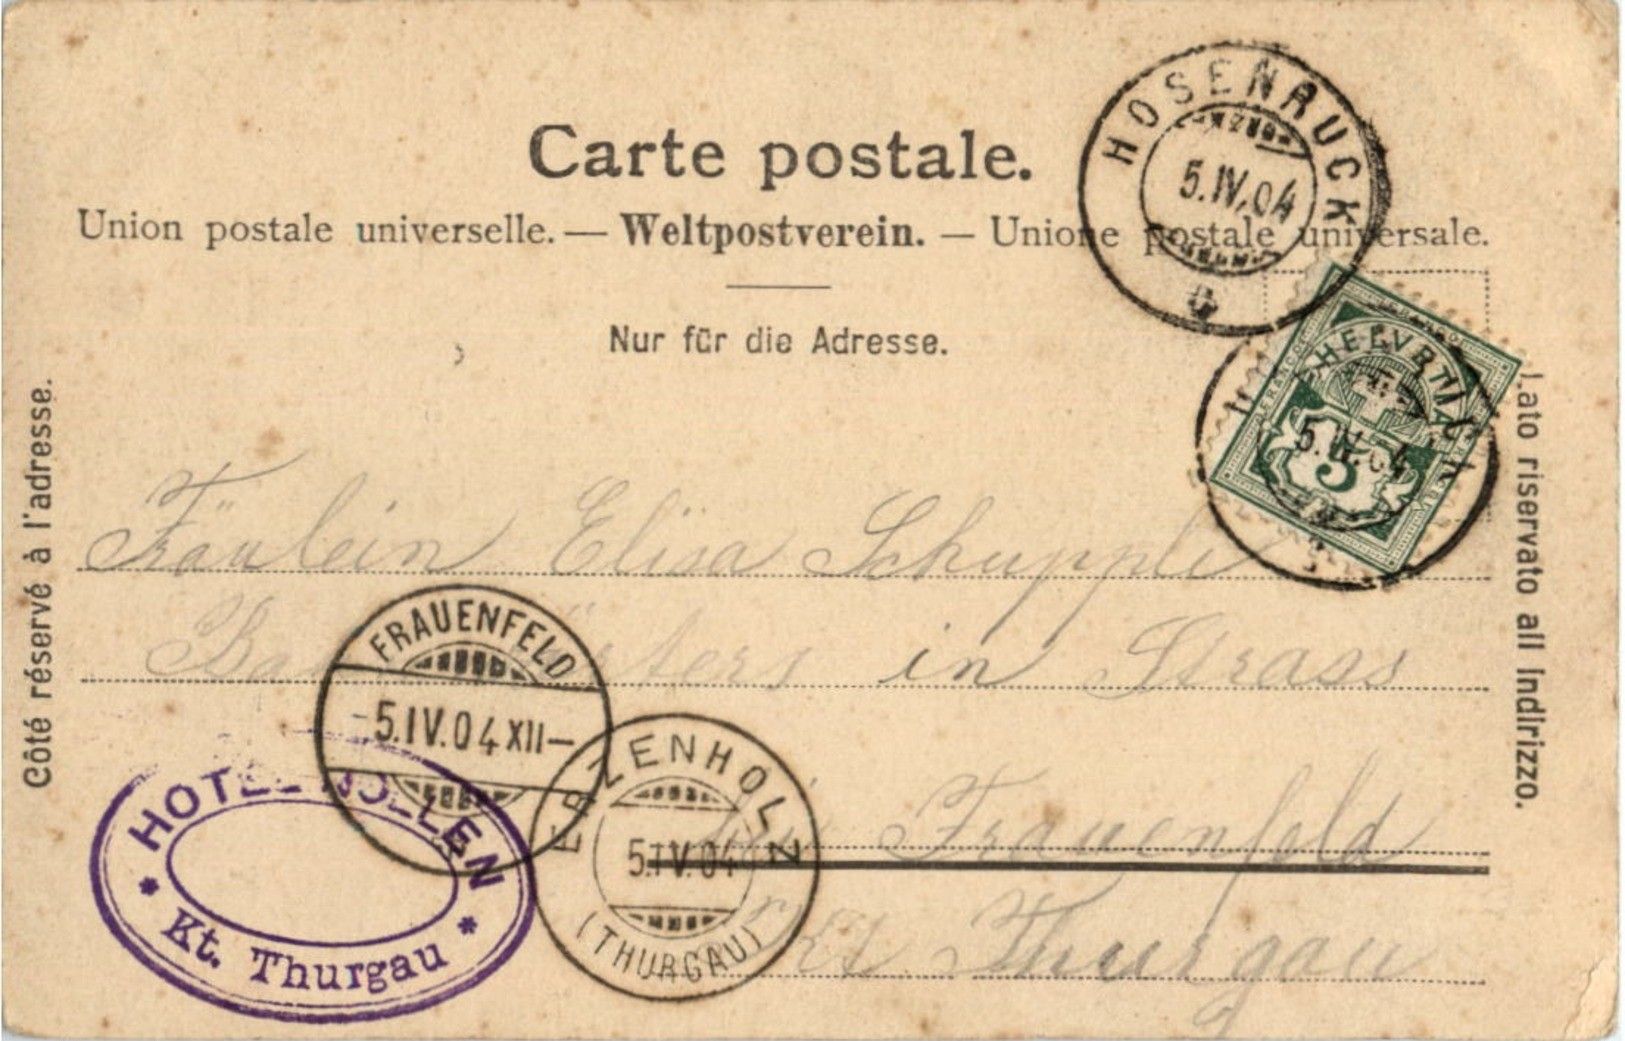 Carte postale.
Union postale universelle. — Weltpostverein. — Unione postale universale.
Nur für die Adresse.
HOSENRUCK
5.IV.04
HELVETIA
FRANCO
5
5.IV.04
Côté réservé à l'adresse.
Lato riservato all Indirizzo.
Fräulein Elisa Schupple
in Strass
FRAUENFELD
-5.IV.04 XII—
bei Frauenfeld
ERZENHOLZ
5.IV.04
(THURGAU)
Kt. Thurgau
HOTEL NOLLEN
* Kt. Thurgau *